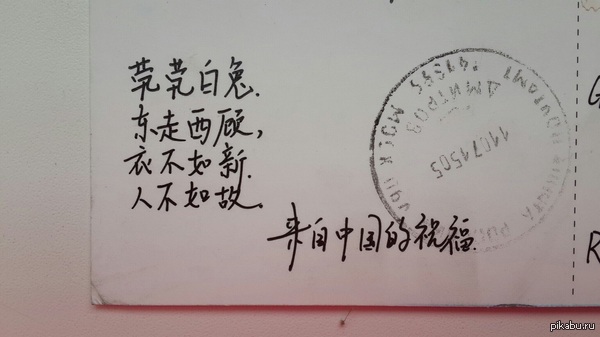 茕茕白兔.
东走西顾,
衣不如新.
人不如故.
来自中国的祝福.
ДМИТРОВ
141555
11071505
pikabu.ru